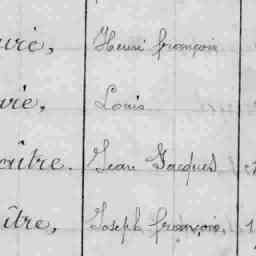 Henri françois
Louis
aître. Jean Jacques
ître, Joseph françois,